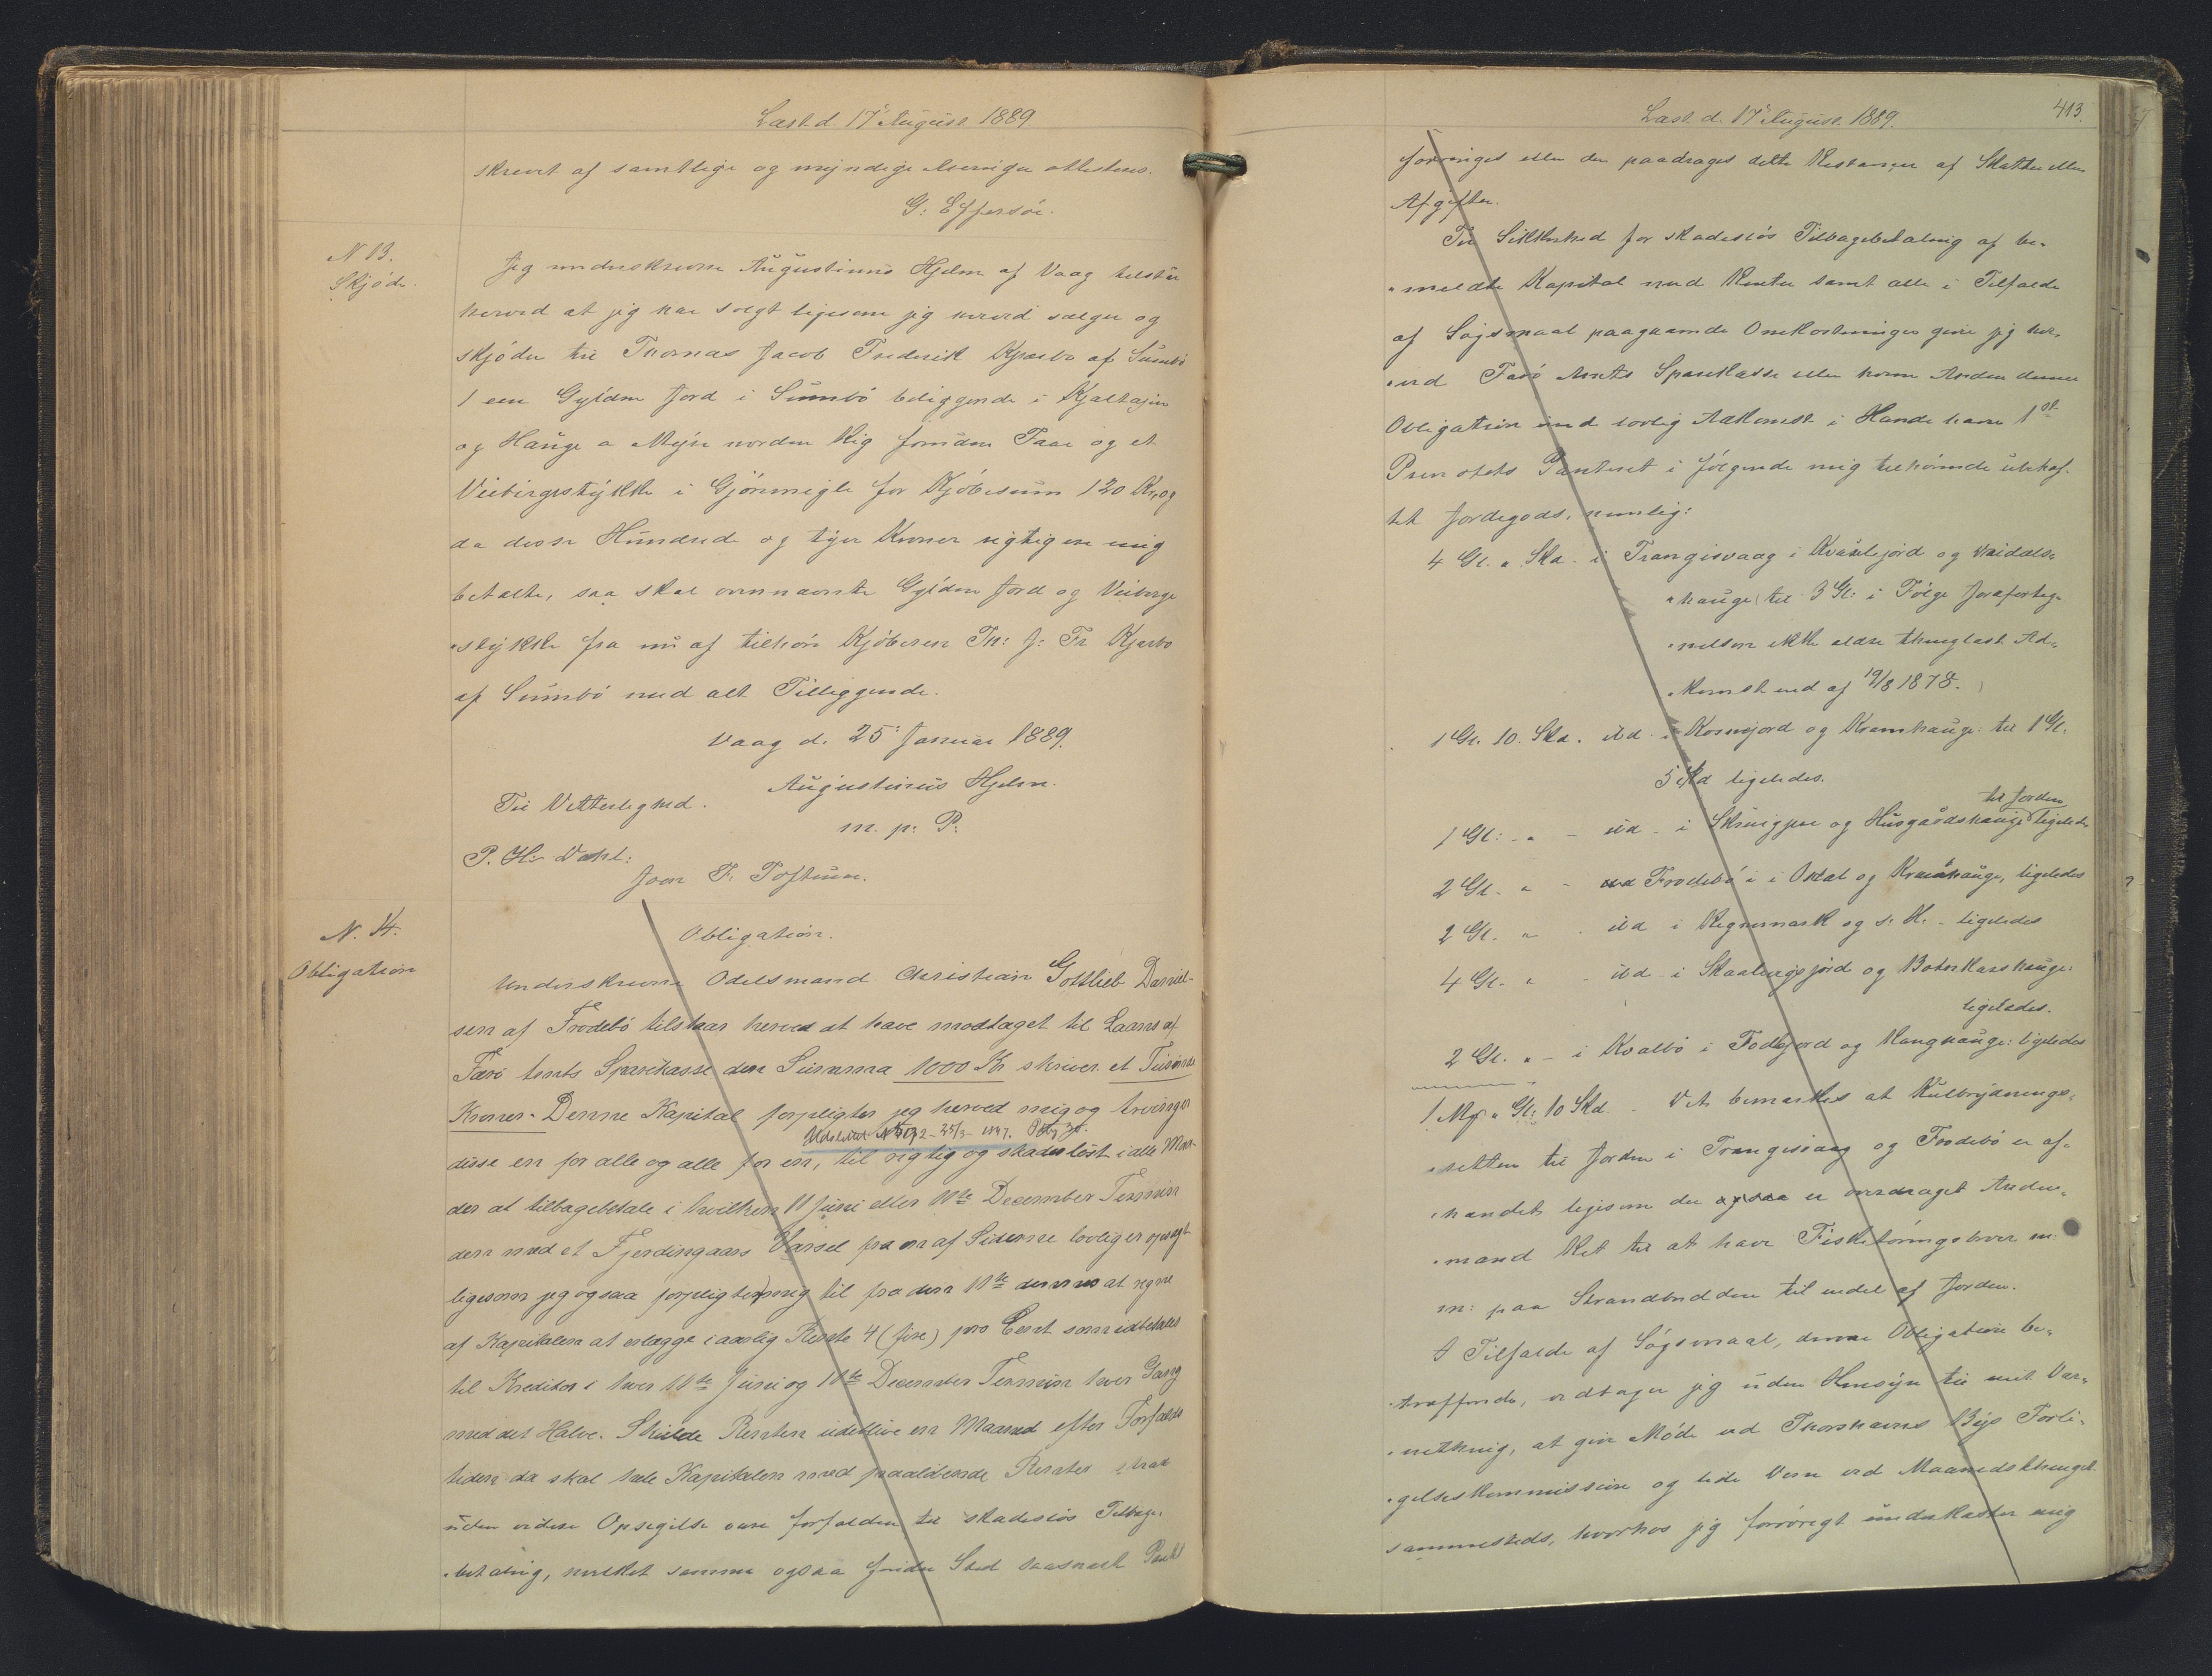 Læst d. 17' August 1889.
skrevet af samtlige og myndige Arvinger attesteres.
G: Effersöe.
N 13.
Skjöde.
Jeg underskrevne Augustinus Hjelm af Vaag tilstår
herved at jeg har solgt ligesom jeg herved sælger og
skjöder til Thomas Jacob Frederik Kjærbo af Sumbö
1 een Gylden Jord i Sumbö beliggende i
og Hauge a Mýre norden foruden Faar og et
Veibirgestykke i for Kjöbesum 120 Kr, og
da disse Hundrede og tyve Kroner rigtig ere mig
betalte, saa skal ovennævnte Gylden Jord og Veibirge
"stykke fra nu af tilhöre Kjöberen Th: J: Fr Kjærbo
af Sumbö med alt Tilliggende.
Vaag d. 25' Januar 1889.
Augustinus Hjelm.
m. p: P:
Til Vitterlighed.
P. H: Dahl:
Joen F: Toftum.
N. 14.
Obligation
Obligation.
Underskrevne Odelsmand Christian Gottlieb Daniel-
sen af Frodebö tilstaar herved at have modtaget til Laans af
Færö Amts Sparekasse den Summa 1000 Kr skriver et Tusinde
Kroner. Denne Kapital forpligter jeg herved mig og Arvinger
Udslettet 25/3 1897.
disse en for alle og alle for en, til rigtig og skadeslöst i alle Maa-
der at tilbagebetale i hvilken 11 Juni eller 11te December Termin
den med et Fjerdingaars Varsel fra en af Siderne lovlig er opsagt
ligesom jeg ogsaa forpligter mig til fra den 11te dennes at regne
af Kapitalen at erlægge i aarlig Rente 4 (fire) pro Cent som udbetales
til Kreditor i hver 11te Juni og 11te December Termin hver Gang
med det Halve. Skulde Renten udeblive en Maaned efter Forfalds
tiden da skal hele Kapitalen med paalöbende Renter strax
uden videre Opsigelse være forfalden til skadeslös Tilbage-
"betaling, hvilket samme ogsaa finder Sted saasnart Pantet
413.
Læst d. 17' August 1889.
forringes eller der paadrages dette Restancer af Skatter eller
Afgifter.
Til Sikkerhed for skadeslös Tilbagebetaling af be-
"meldte Kapital med Renter samt alle i Tilfælde
af Sögsmaal paagaaende Omkostninger giver jeg her-
"ved Færö Amts Sparekasse eller hvem Anden denne
Obligation med lovlig Adkomst i Hænde have 1ste
Prioritets Panteret i fölgende mig tilhörende ubehæf-
tet Jordegods, nemlig:
4 Gl. " Skd. i Trangisvaag i og
"hauge til 3 Gl: i Fölge
"nelsen ikke ældre thinglæst Ad-
"komst end af 19/8 1878.
1 Gl. 10 Skd. ibd i og til 1 Gl.
5 Skd ligeledes.
1 Gl: - " - ibd - i og Husgaardshauge til Jorden ligeledes
2 Gl. " - ibd Frodebö i og ligeledes
2 Gl. " - ibd i og s. H. - ligeledes
4 Gl. " - ibd - i og
ligeledes.
2 Gl. " - i Kvalbö i og ligeledes
1 Mrk " Gl: 10 Skd. - Det bemærkes at Kulbrydnings-
"retten til Jorden i Trangisvaag og Frodebö er af-
"hændet, ligesom der ogsaa er overdraget Anden-
"mand Ret til at have m:
m: paa Strandbredden til endel af Jorden.
I Tilfælde af Sögsmaal, denne Obligation be-
"træffende, vedtager jeg uden Hensyn til mit Vær-
"nething, at give Möde ved Thorshavns Bys Forli-
"gelseskommission og lide Dom ved Maanedsthinget
sammesteds, hvorhos jeg forövrigt underkaster mig